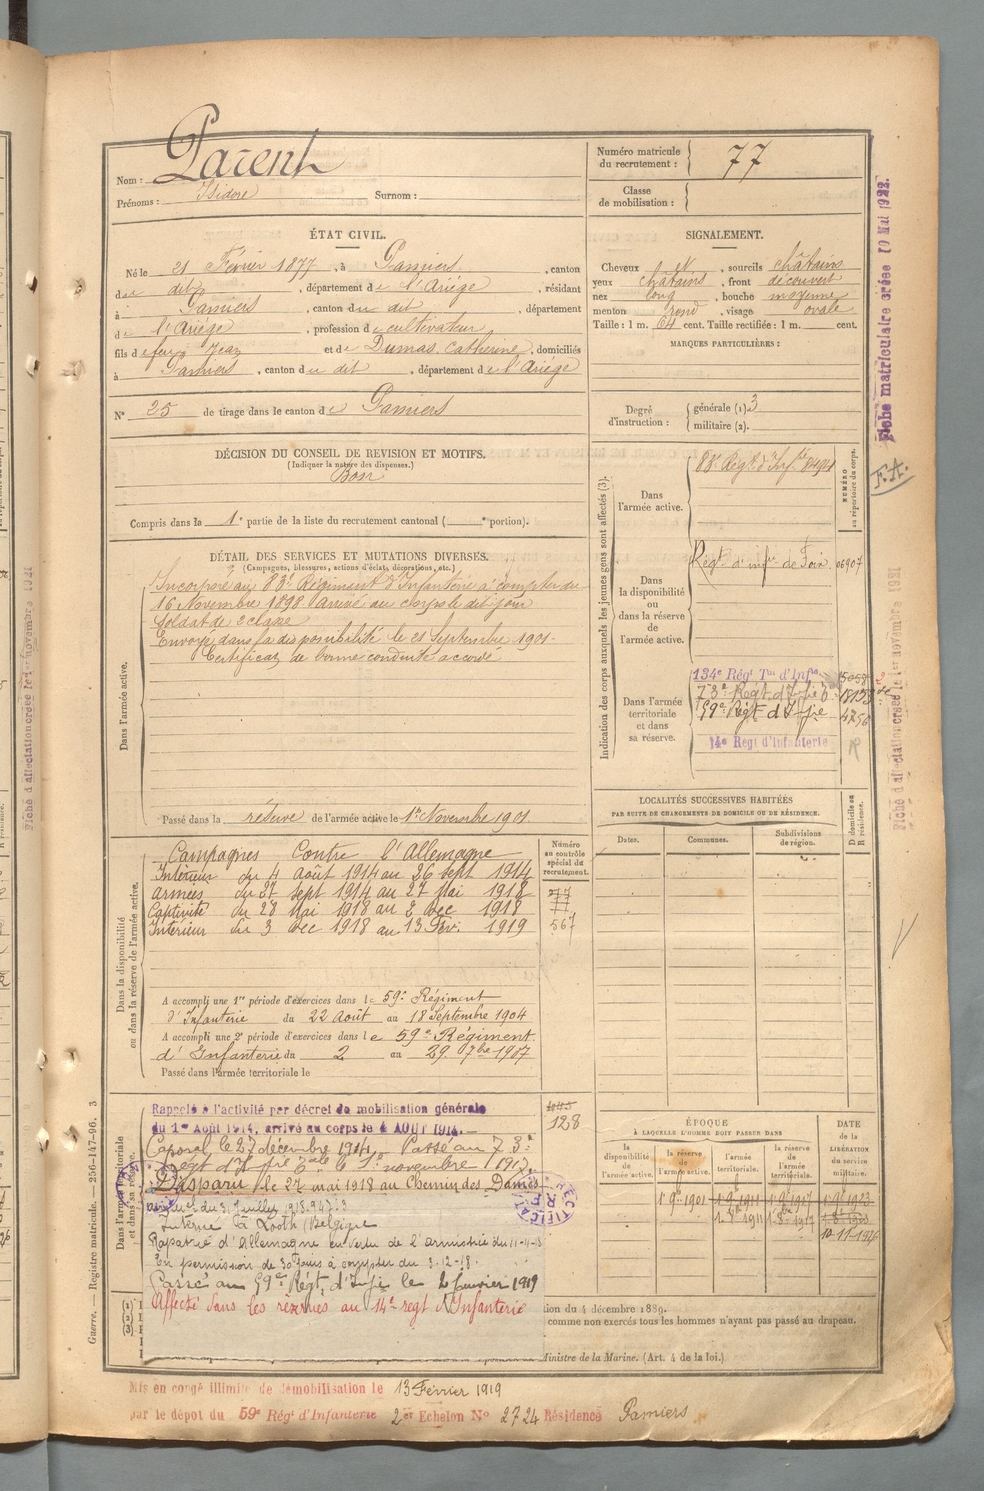 Nom : Parent
Prénoms : Isidore Surnom :
Numéro matricule du recrutement : 77
Classe de mobilisation :
ÉTAT CIVIL.
Né le 21 Février 1877, à Pamiers, canton
du dit, département de l'Ariège, résidant
à Pamiers, canton du dit, département
de l'Ariège, profession de cultivateur
fils de feu Jean et de Dumas, Catherine, domiciliés
à Pamiers, canton du dit, département de l'Ariège
N° 25 de tirage dans le canton de Pamiers
SIGNALEMENT.
Cheveux et sourcils châtains
yeux châtains, front découvert
nez long, bouche moyenne
menton rond, visage ovale
Taille : 1 m. 64 cent. Taille rectifiée : 1 m. cent.
MARQUES PARTICULIÈRES :
Degré d'instruction : générale (1). 3
militaire (2).
DÉCISION DU CONSEIL DE REVISION ET MOTIFS.
(Indiquer la nature des dispenses.)
Bon
Compris dans la 1e partie de la liste du recrutement cantonal ( e portion).
DÉTAIL DES SERVICES ET MUTATIONS DIVERSES.
(Campagnes, blessures, actions d'éclat, décorations, etc.)
Dans l'armée active.
Incorporé au 83e Régiment d'Infanterie à compter du
16 Novembre 1898. Arrivé au corps le dit jour
Soldat de 2 classe
Envoyé dans la disponibilité le 21 Septembre 1901.
Certificat de bonne conduite accordé
Passé dans la réserve de l'armée active le 1er Novembre 1901
Indication des corps auxquels les jeunes gens sont affectés (3).
NUMÉRO au répertoire du corps.
Dans l'armée active.
83e Régt d'Infie
Dans la disponibilité ou dans la réserve de l'armée active.
Régt d'infie de Foix 06907
Dans l'armée territoriale et dans sa réserve.
134e Régt Tal d'Infie 15058
73e Régt d'Infie
59e Régt d'Infie 4756
14e Regt d'Infanterie
LOCALITÉS SUCCESSIVES HABITÉES
PAR SUITE DE CHANGEMENTS DE DOMICILE OU DE RÉSIDENCE.
Dates. Communes. Subdivisions de région. D domicile ou R résidence.
Dans la disponibilité ou dans la réserve de l'armée active.
Numéro au contrôle spécial du recrutement.
Campagnes Contre l'Allemagne
Intérieur du 4 août 1914 au 26 sept 1914
Armées du 27 sept 1914 au 27 Mai 1918 77
Captivité du 28 Mai 1918 au 2 Dec 1918 77
Intérieur du 3 Dec 1918 au 13 Fév. 1919 567
A accompli une 1re période d'exercices dans le 59e Régiment
d'Infanterie du 22 Août au 18 Septembre 1904
A accompli une 2e période d'exercices dans le 59e Régiment
d'Infanterie du 2 au 29 7bre 1907
Passé dans l'armée territoriale le
Dans l'armée territoriale et dans sa réserve.
Rappelé à l'activité par décret de mobilisation générale
du 1er Août 1914, arrivé au corps le 4 AOUT 1914.
128
Caporal le 27 décembre 1914. Passé au 73e
Régt d'Infie Tale le 1er novembre 1917.
Disparu le 27 mai 1918 au Chemin des Dames
Interné à (Belgique
Rapatrié d'Allemagne en vertu de l'armistice du 11-11-18
En permission de 30 jours à compter du 3-12-18.
Passé au 59e Régt d'Infie le 2 Janvier 1919
Affecté dans les reserves au 14e regt d'Infanterie
RECTIFICATION
R F
ÉPOQUE
A LAQUELLE L'HOMME DOIT PASSER DANS
la disponibilité de l'armée active. la réserve de l'armée active. l'armée territoriale. la réserve de l'armée territoriale.
DATE DE LA LIBÉRATION DU service militaire.
1 9e 1901 1 9e 1911 1 9e 1917 1 9e 1923
ion du 4 décembre 1889.
comme non exercés tous les hommes n'ayant pas passé au drapeau.
Ministre de la Marine. (Art. 4 de la loi.)
Mis en congé illimité de démobilisation le 13 Février 1919
par le dépot du 59e Régt d'Infanterie 2er Echelon No 2724 Résidence Pamiers
Guerre. — Registre matricule. — 256-147-96. 3
Fiche matriculaire créée 10 Mai 1922.
F.A.
Fiche d'affectation créée le 1er novembre 1921
Fiche d'affectation créée le 1er novembre 1921